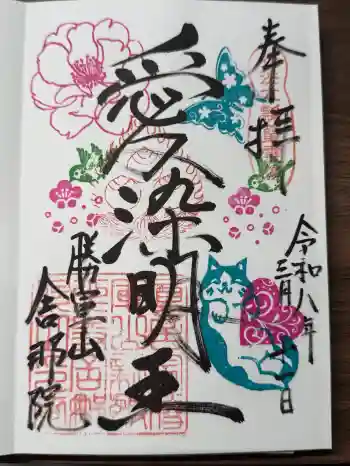 奉拝
愛染明王
令和八年
三月十一日
勝軍山
舎那院